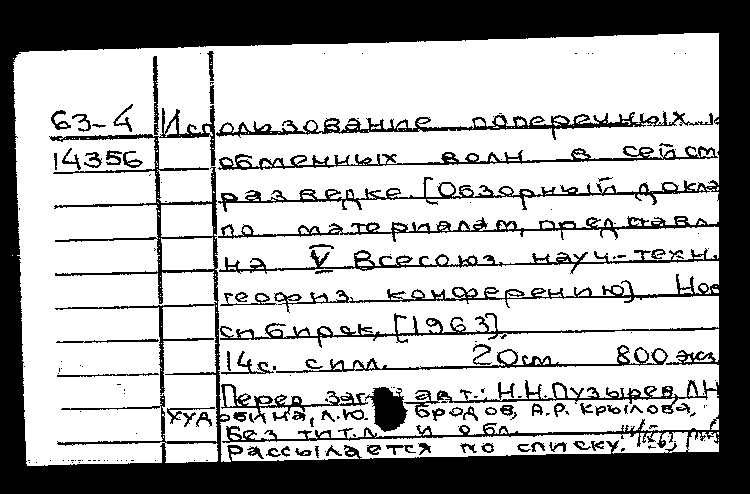 63-4 Использование поперечных и
14356 обменных волн в сейсм
разведке. [Обзорный докла
по материалам, представл.
на V Всесоюз. науч.-техн.
геофиз. конференцию]. Нов
сибирск, [1963].
14с. с илл. 20см. 800 экз
Перед загл. авт.: Н.Н.Пузырев, Л.Н.
Худ Л.Ю. Бродов, А.Р. Крылова,
Без тит. л. и обл.
Рассылается по списку.